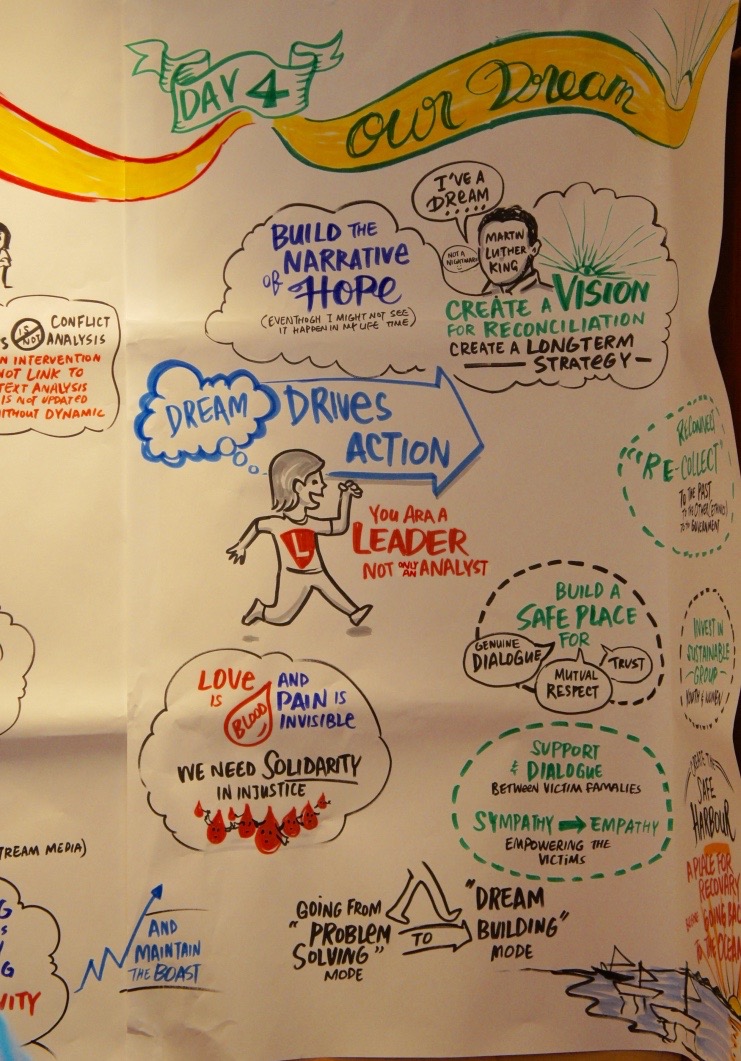 DAY 4
OUR Dream
I'VE A
DREAM
.....
NOT A
NIGHTMARE
MARTIN
LUTHER
KING
BUILD THE
NARRATIVE
OF HOPE
(EVENTHOGH I MIGHT NOT SEE
IT HAPPEN IN MY LIFE TIME)
CREATE A VISION
FOR RECONCILIATION
CREATE A LONGTERM
STRATEGY
IS NOT
CONFLICT
ANALYSIS
INTERVENTION
NOT LINK TO
TEXT ANALYSIS
IS NOT UPDATED
WITHOUT DYNAMIC
DREAM
DRIVES
ACTION
L
YOU ARA A
LEADER
NOT ONLY AN ANALYST
RECONNECT
"RE-COLLECT"
TO THE PAST
TO THE OTHER (ETHNIC)
TO THE GOVERNMENT
BUILD A
SAFE PLACE
FOR
GENUINE
DIALOGUE
MUTUAL
RESPECT
TRUST
INVEST IN
SUSTAINABLE
GROUP
YOUTH & WOMEN
LOVE
IS
BLOOD
AND
PAIN IS
INVISIBLE
WE NEED SOLIDARITY
IN INJUSTICE
SUPPORT
& DIALOGUE
BETWEEN VICTIM FAMALIES
SYMPATHY → EMPATHY
EMPOWERING THE
VICTIMS
CREATE THE
SAFE
HARBOUR
A PLACE FOR
RECOVARY
BEFORE GOING BACK
TO THE OCEAN
TREAM MEDIA)
AND
MAINTAIN
THE BOAST
GOING FROM
"PROBLEM
SOLVING"
MODE
TO
"DREAM
BUILDING"
MODE